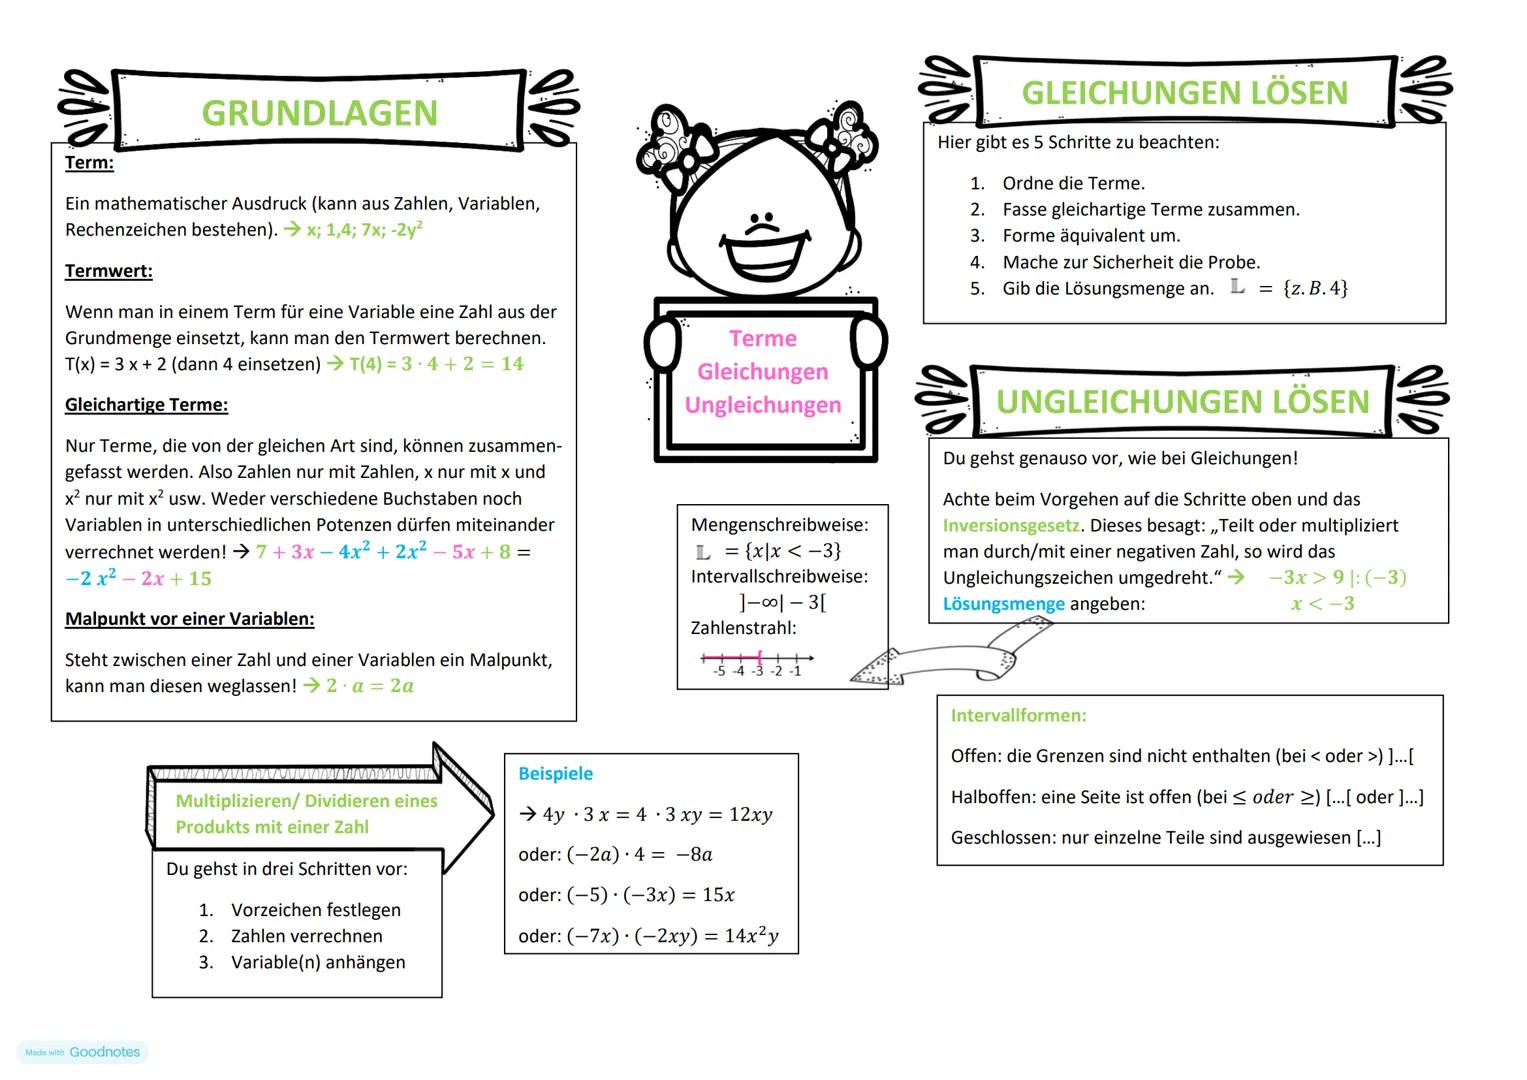 GRUNDLAGEN
Term:
Ein mathematischer Ausdruck (kann aus Zahlen, Variablen,
Rechenzeichen bestehen). → x; 1,4; 7x; -2y²
Termwert:
Wenn man in einem Term für eine Variable eine Zahl aus der
Grundmenge einsetzt, kann man den Termwert berechnen.
T(x) = 3 x + 2 (dann 4 einsetzen) → T(4) = 3 · 4 + 2 = 14
Gleichartige Terme:
Nur Terme, die von der gleichen Art sind, können zusammen-
gefasst werden. Also Zahlen nur mit Zahlen, x nur mit x und
x² nur mit x² usw. Weder verschiedene Buchstaben noch
Variablen in unterschiedlichen Potenzen dürfen miteinander
verrechnet werden! → 7 + 3x − 4x² + 2x² − 5x + 8 =
−2 x² − 2x + 15
Malpunkt vor einer Variablen:
Steht zwischen einer Zahl und einer Variablen ein Malpunkt,
kann man diesen weglassen! → 2 · a = 2a
Multiplizieren/ Dividieren eines
Produkts mit einer Zahl
Du gehst in drei Schritten vor:
1. Vorzeichen festlegen
2. Zahlen verrechnen
3. Variable(n) anhängen
Beispiele
→ 4y · 3 x = 4 · 3 xy = 12xy
oder: (−2a) · 4 = −8a
oder: (−5) · (−3x) = 15x
oder: (−7x) · (−2xy) = 14x²y
Terme
Gleichungen
Ungleichungen
Mengenschreibweise:
𝕃 = {x|x < −3}
Intervallschreibweise:
]−∞| − 3[
Zahlenstrahl:
-5 -4 -3 -2 -1
GLEICHUNGEN LÖSEN
Hier gibt es 5 Schritte zu beachten:
1. Ordne die Terme.
2. Fasse gleichartige Terme zusammen.
3. Forme äquivalent um.
4. Mache zur Sicherheit die Probe.
5. Gib die Lösungsmenge an. 𝕃 = {z. B. 4}
UNGLEICHUNGEN LÖSEN
Du gehst genauso vor, wie bei Gleichungen!
Achte beim Vorgehen auf die Schritte oben und das
Inversionsgesetz. Dieses besagt: „Teilt oder multipliziert
man durch/mit einer negativen Zahl, so wird das
Ungleichungszeichen umgedreht.“ → −3x > 9 |: (−3)
Lösungsmenge angeben: x < −3
Intervallformen:
Offen: die Grenzen sind nicht enthalten (bei < oder >) ]...[
Halboffen: eine Seite ist offen (bei ≤ oder ≥) [...[ oder ]...]
Geschlossen: nur einzelne Teile sind ausgewiesen [...]
Made with Goodnotes